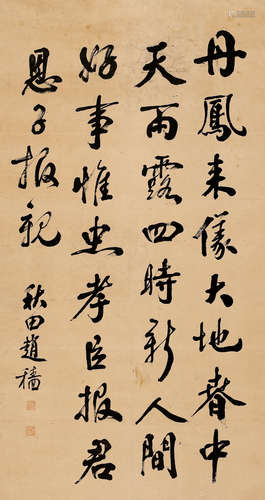 丹鳳来儀大地春中
天雨露四時新人間
好事惟忠孝臣報君
恩子报親
秋田趙穡